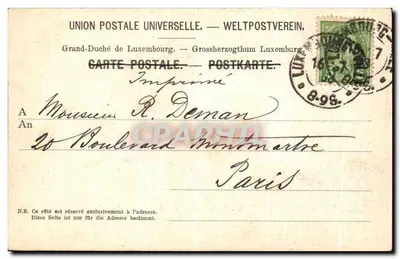 UNION POSTALE UNIVERSELLE. — WELTPOSTVEREIN.
Grand-Duché de Luxembourg. — Grossherzogthum Luxemburg.
CARTE POSTALE. — POSTKARTE.
Imprimé
A
An
Monsieur R. Deman
20 Boulevard Montmartre
Paris
N.B. Ce côté est réservé exclusivement à l'adresse.
Diese Seite ist nur für die Adresse bestimmt.
8-9S.
CPARAMA